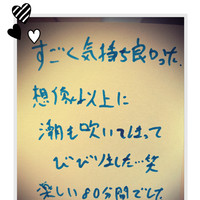 すごく気持ち良かった。
想像以上に
潮も吹いてしまって
びびりました…笑
楽しい80分間でした